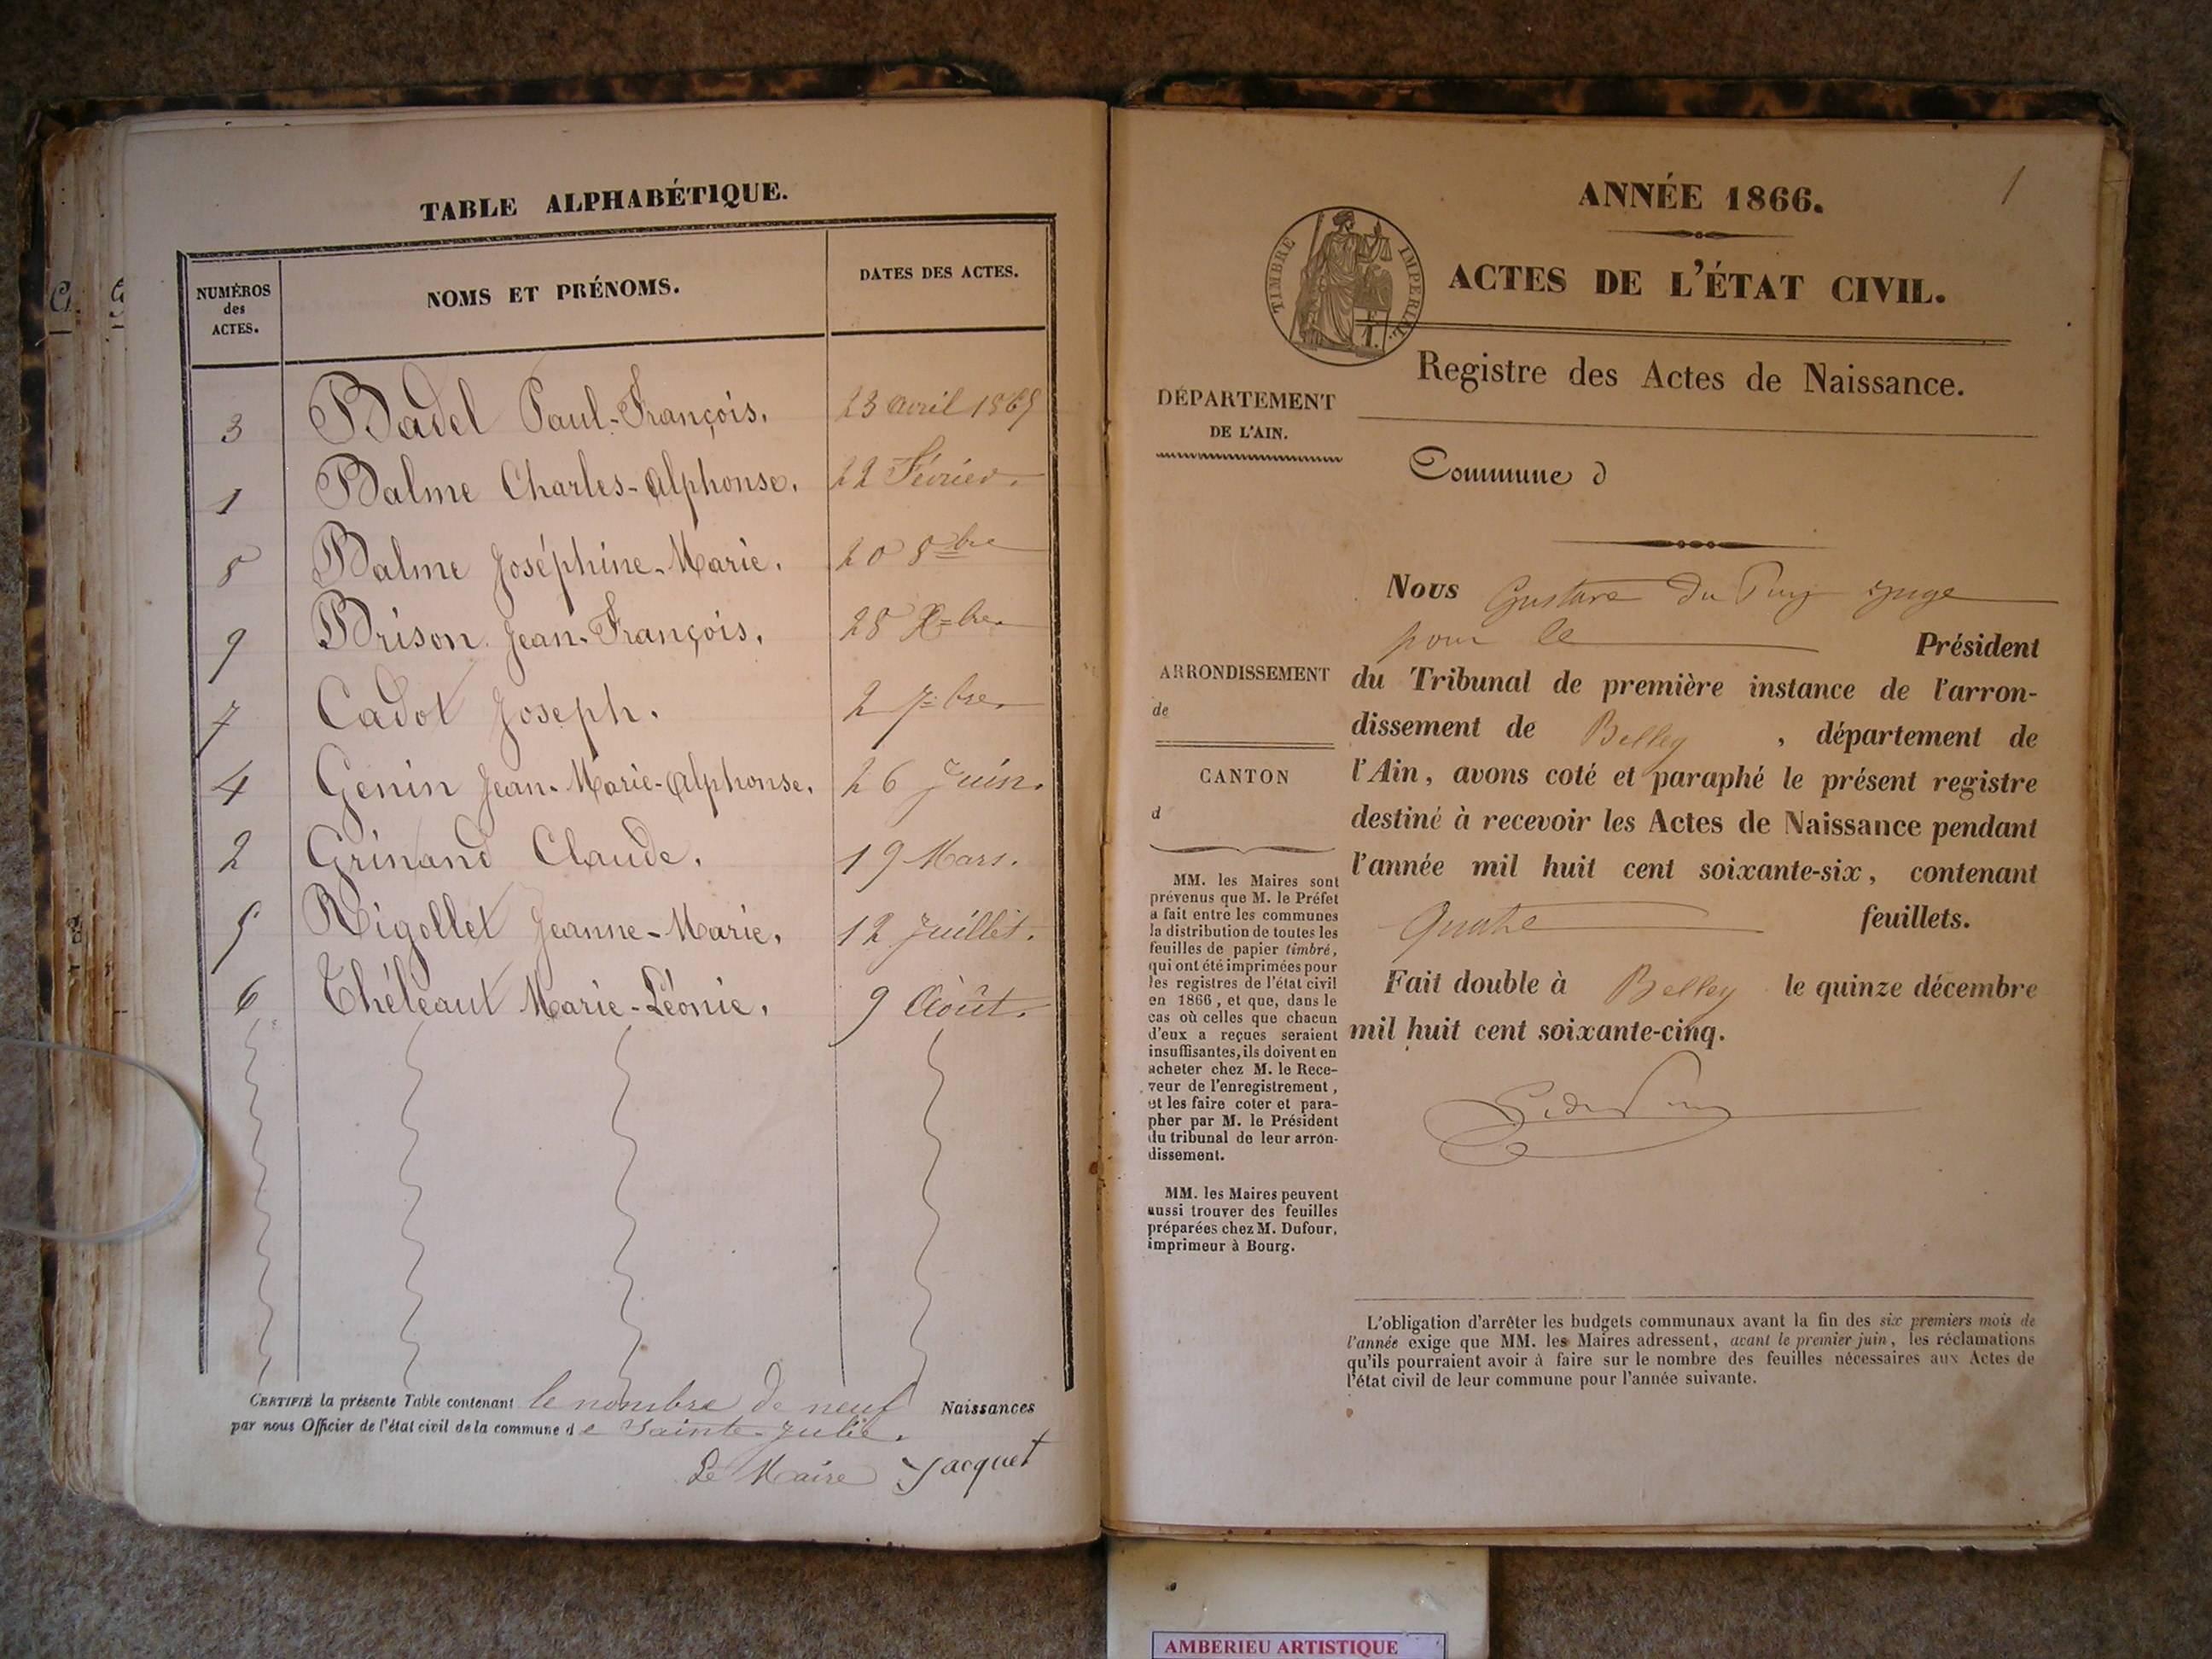 TABLE ALPHABÉTIQUE.
NUMÉROS des ACTES. NOMS ET PRÉNOMS. DATES DES ACTES.
3 Badel Paul-François. 23 avril 1865
1 Balme Charles-Alphonse. 22 Février.
8 Balme Joséphine-Marie. 20 8bre
9 Brison Jean-François. 28 Xbre
7 Cadot Joseph. 2 7bre
4 Genin Jean-Marie-Alphonse. 26 Juin.
2 Grinand Claude. 19 Mars.
5 Rigollet Jeanne-Marie. 12 Juillet.
6 Théleaut Marie-Léonie. 9 Août.
CERTIFIÉ la présente Table contenant le nombre de neuf Naissances
par nous Officier de l'état civil de la commune de Sainte-Julie.
Le Maire Jacquet
1
ANNÉE 1866.
TIMBRE IMPERIAL
ACTES DE L'ÉTAT CIVIL.
Registre des Actes de Naissance.
DÉPARTEMENT
DE L'AIN.
Commune d
ARRONDISSEMENT
de
CANTON
d
MM. les Maires sont
prévenus que M. le Préfet
a fait entre les communes
la distribution de toutes les
feuilles de papier timbré,
qui ont été imprimées pour
les registres de l'état civil
en 1866, et que, dans le
cas où celles que chacun
d'eux a reçues seraient
insuffisantes, ils doivent en
acheter chez M. le Rece-
veur de l'enregistrement,
et les faire coter et para-
pher par M. le Président
du tribunal de leur arron-
dissement.
MM. les Maires peuvent
aussi trouver des feuilles
préparées chez M. Dufour,
imprimeur à Bourg.
Nous Gustave Du Puy juge
pour le Président
du Tribunal de première instance de l'arron-
dissement de Belley, département de
l'Ain, avons coté et paraphé le présent registre
destiné à recevoir les Actes de Naissance pendant
l'année mil huit cent soixante-six, contenant
quatre feuillets.
Fait double à Belley le quinze décembre
mil huit cent soixante-cinq.
L'obligation d'arrêter les budgets communaux avant la fin des six premiers mois de
l'année exige que MM. les Maires adressent, avant le premier juin, les réclamations
qu'ils pourraient avoir à faire sur le nombre des feuilles nécessaires aux Actes de
l'état civil de leur commune pour l'année suivante.
AMBERIEU ARTISTIQUE